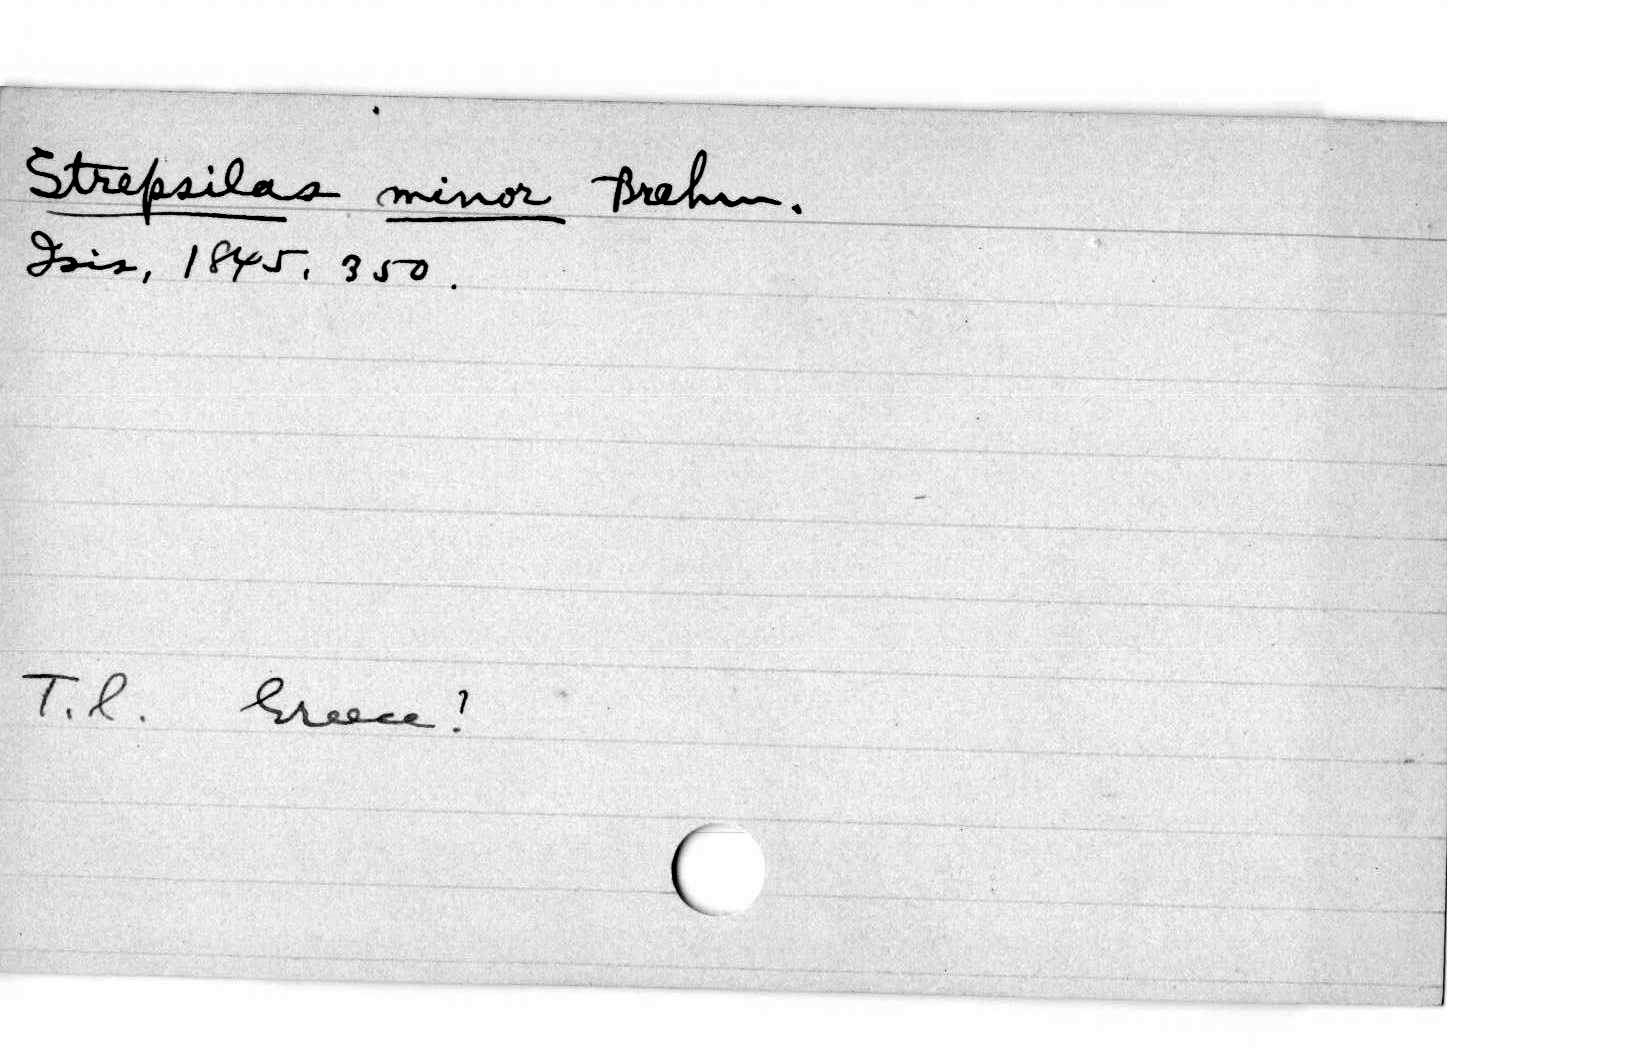 Strepsilas minor Brehm.
Isis, 1845, 350.
T.l. Greece!